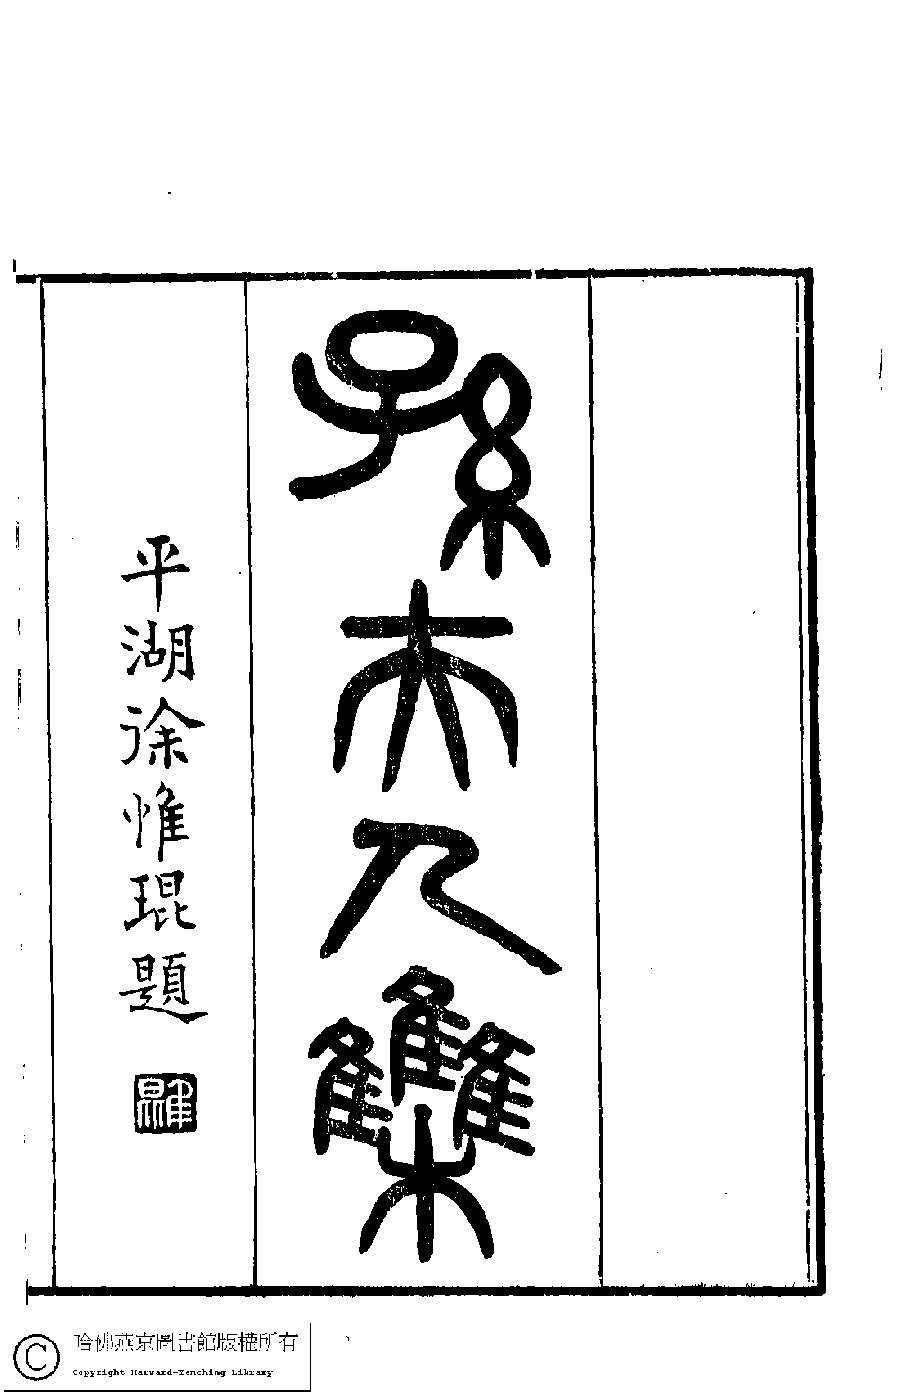 孫夫人雧
平湖徐惟琨題
哈佛燕京圖書館版權所有
Copyright Harvard-Yenching Library